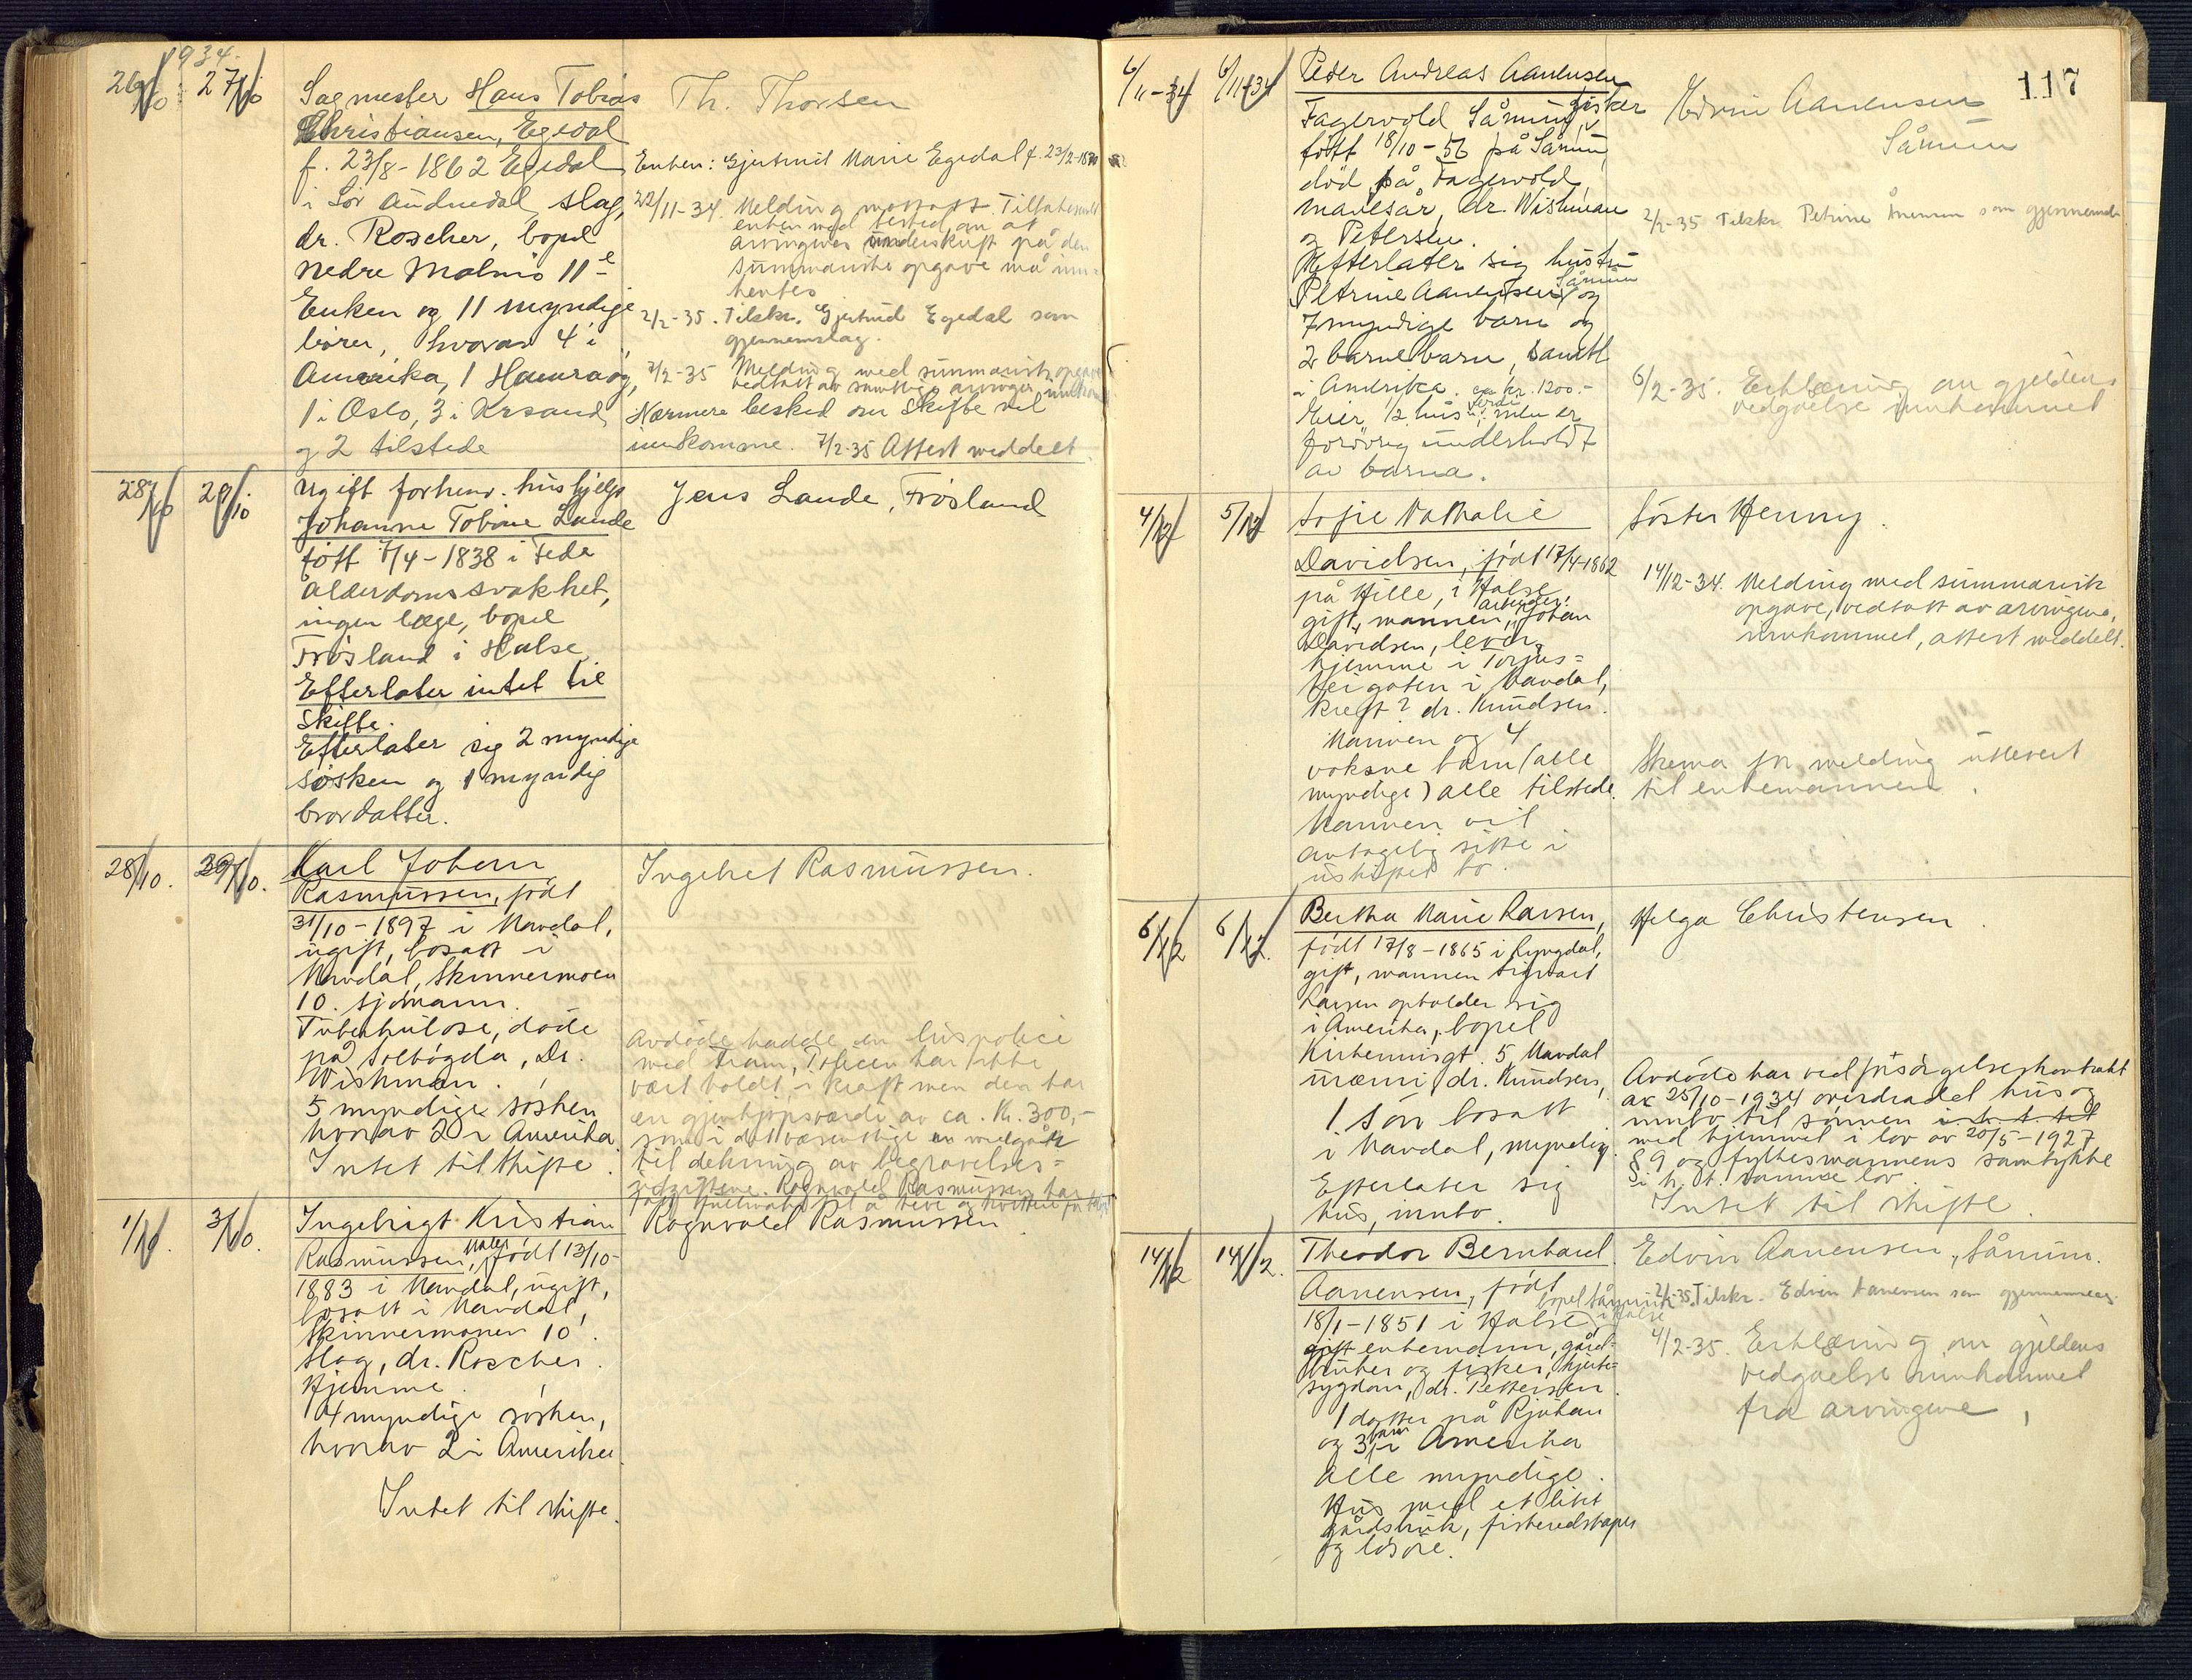 1934.
26/10 27/10
Sagmester Hans Tobias
Christiansen, Egedal
f. 23/8-1862 Egedal
i Sör Audnedal, slag,
dr. Roscher, bopel
nedre Malmö 11e
Enken og 11 myndige
börn, hvorav 4 i
Amerika, 1 Hamraøy,
1 i Oslo, 3 i Krsand
og 2 tilstede
Th. Thorsen
Enken: Gjertrud Marie Egedal f. 23/2-1870
22/11-34. Melding mottatt. Tilbakesendt
enken med beskjed om at
arvingenes underskrift på den
summariske opgave må inn-
hentes
2/2-35. Tilskr. Gjertrud Egedal som
gjennemslag.
7/2-35 Melding med summarisk opgave
vedtatt av samtlige arvinger innkom
Nærmere besked om skifte vil
innkomme. 7/2-35 Attest meddelt.
28/10 29/10
Ugift forhenv. hushjelp
Johanne Tobine Lande
fött 7/4-1838 i Feda
Ålderdomssvakhet,
ingen læge, bopel
Frösland i Halse
Efterlater intet til
skifte.
Efterlater sig 2 myndige
søsken og 1 myndig
brordatter.
Jens Lande, Frösland
28/10. 29/10.
Karl Johan
Rasmussen, født
31/10-1897 i Mandal,
ugift, bosatt i
Mandal, Skinnermoen
10. sjömann.
Tuberkulose, döde
på Solbögda, Dr.
Wishman.
5 myndige søsken
hvorav 2 i Amerika
Intet til skifte.
Ingebret Rasmussen.
Avdöde hadde en livspolice
med Fram, Policen har ikke
vært holdt i kraft men den har
en gjenkjöpsværdi av ca. Kr. 300,-
som i det væsentlige vil medgå
til dekning av begravelses-
utgiftene. Ragnvald Rasmussen har
fått fullmakt til å heve og kvittere for
1/10. 3/10.
Ingebrigt Kristian
Rasmussen, maler, født 13/10-
1883 i Mandal, ugift,
bosatt i Mandal,
Skinnermoen 10.
slag, dr. Roscher.
Hjemme.
4 myndige søsken,
hvorav 2 i Amerika.
Intet til skifte.
Ragnvald Rasmussen
117
6/11-34 6/11-34
Peder Andreas Aanensen
Fagervold Sånum, fisker
fött 18/10-56 på Sånum,
död på Fagervold,
mavesår, dr. Wishman
og Petersen.
Efterlater sig hustru
Petrine Aanensen, Sånum og
7 myndige barn og
2 barnebarn, samtl
i Amerika. ca kr. 1200.-
Eier 1/2 hus verdi, men er
forövrig underholdt
av barna.
Edvin Aanensen
Sånum
2/2-35 Tilskr. Petrine Ånensen som gjennemsl.
6/2-35. Erklæring om gjeldens
vedgåelse innkommet
4/12 5/12
Sofie Nathalie
Davidsen, født 17/4-1862
på Hille, i Halse
gift, mannen, arbeider, Johan
Davidsen, lever,
hjemme i Torjus-
heigaten i Mandal,
kreft? dr. Knudsen.
Mannen og 4
voksne barn (alle
myndige) alle tilstede.
Mannen vil
antagelig sitte i
uskiftet bo.
Söster Henny.
14/12-34. Melding med summarisk
opgave, vedtatt av arvingene,
innkommet, attest meddelt.
Skema for melding utlevert
til enkemannen.
6/12 6/12.
Bertha Marie Larsen,
født 17/8-1865 i Lyngdal,
gift, mannen Sigvart
Larsen opholder sig
i Amerika, bopel
Kirkennsgt. 5, Mandal
uræmi, dr. Knudsen,
1 sön bosatt
i Mandal, myndig.
Efterlater sig
hus, innbo.
Helga Christensen.
Avdöde har ved forsörgelseskontrakt
av 25/10-1934 overdradd hus og
innbo til sønnen i h. t. til
med hjemmel i lov av 20/5-1927
§ 9 og fylkesmannens samtykke
i h. t. samme lov
Intet til skifte.
14/12 14/12.
Theodor Bernhard
Aanensen, født
bopel Sånum i Halse
18/1-1851 i Halse
gift enkemann, gård-
bruker og fisker, hjerte-
sygdom, dr. Pettersen.
1 datter på Rjukan
og 3 barn i Amerika
alle myndige.
Hus med et litet
gårdsbruk, fiskeredskaper
og løsøre.
Edvin Aanensen, Sånum.
2/2-35. Tilskr. Edvin Aanensen som gjennemslag.
4/2-35. Erklæring om gjeldens
vedgåelse innkommet
fra arvingene,